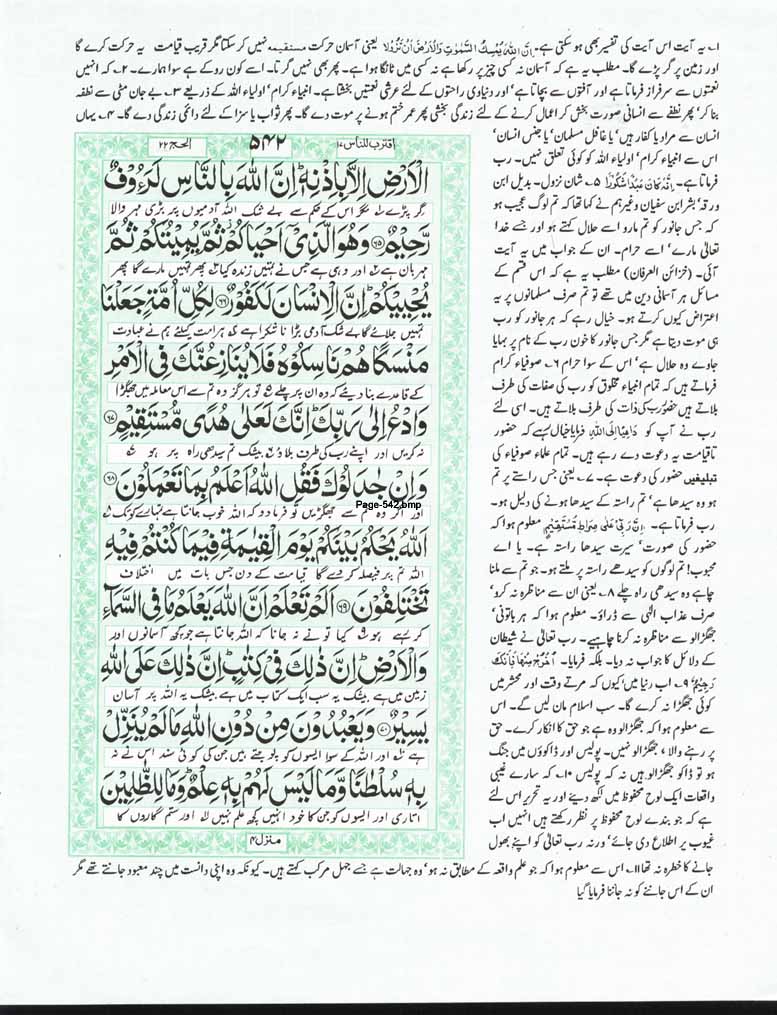 ۱۔ یہ آیت اس آیت کی تفسیر بھی ہو سکتی ہے۔ اِنَّ اللهَ يُمْسِكُ السَّمٰوٰتِ وَالْاَرْضَ اَنْ تَزُوْلَا یعنی آسمان حرکت مستقیمہ نہیں کر سکتا مگر قریب قیامت یہ حرکت کرے گا
اور زمین پر گر پڑے گا۔ مطلب یہ ہے کہ آسمان نہ کسی چیز پر رکھا ہے نہ کسی میں ٹانگا ہوا ہے۔ پھر بھی نہیں گرتا۔ اسے کون روکے ہے سوا ہمارے۔ ۲۔ کہ انہیں
نعمتوں سے سرفراز فرماتا ہے اور آفتوں سے بچاتا ہے اور دنیاوی راحتوں کے لئے عرشی نعمتیں بخشتا ہے۔ انبیاء کرام، اولیاء اللہ کے ذریعے ۳۔ بے جان مٹی سے نطفہ
بنا کر، پھر نطفے سے انسانی صورت بخش کر اعمال کرنے کے لئے زندگی بخشی پھر عمر ختم ہونے پر موت دے گا۔ پھر ثواب یا سزا کے لئے دائمی زندگی دے گا۔ ۴۔ یہاں
انسان سے مراد یا کفار ہیں، یا غافل مسلمان، یا جنس انسان،
اس سے انبیاء کرام، اولیاء اللہ کو کوئی تعلق نہیں۔ رب
فرماتا ہے۔ اِنَّهٗ كَانَ عَبْدًا شَكُوْرًا ۵۔ شان نزول۔ بدیل ابن
ورقہ، بشر ابن سفیان وغیرہم نے کہا تھا کہ تم لوگ عجیب ہو
کہ جس جانور کو تم مارو اسے حلال کہتے ہو اور جسے خدا
تعالیٰ مارے، اسے حرام۔ ان کے جواب میں یہ آیت
آئی۔ (خزائن العرفان) مطلب یہ ہے کہ اس قسم کے
مسائل ہر آسمانی دین میں تھے تو تم صرف مسلمانوں پر یہ
اعتراض کیوں کرتے ہو۔ خیال رہے کہ ہر جانور کو رب
ہی موت دیتا ہے مگر جس جانور کا خون رب کے نام پر بہایا
جاوے وہ حلال ہے، اس کے سوا حرام ۶۔ صوفیاء کرام
فرماتے ہیں کہ تمام انبیاء مخلوق کو رب کی صفات کی طرف
بلاتے ہیں حضور رب کی ذات کی طرف بلاتے ہیں۔ اسی لئے
رب نے آپ کو دَاعِيًا اِلَى اللهِ فرمایا خیال رہے کہ حضور
تاقیامت یہ دعوت دے رہے ہیں۔ تمام علماء صوفیاء کی
تبلیغیں حضور کی دعوت ہے۔ ۷۔ یعنی جس راستے پر تم
ہو وہ سیدھا ہے، تم راستہ کے سیدھا ہونے کی دلیل ہو۔
رب فرماتا ہے۔ اِنَّ رَبِّيْ عَلٰى صِرَاطٍ مُّسْتَقِيْمٍ معلوم ہوا کہ
حضور کی صورت، سیرت سیدھا راستہ ہے۔ یا اے
محبوب! تم لوگوں کو سیدھے راستہ پر ملتے ہو۔ جو تم سے ملنا
چاہے وہ سیدھی راہ چلے ۸۔ یعنی ان سے مناظرہ نہ کرو،
صرف عذاب الٰہی سے ڈراؤ۔ معلوم ہوا کہ ہر باتونی،
جھگڑالو سے مناظرہ نہ کرنا چاہیے۔ رب تعالیٰ نے شیطان
کے دلائل کا جواب نہ دیا۔ بلکہ فرمایا۔ اُخْرُجْ مِنْهَا فَاِنَّكَ
رَجِيْمٌ ۹۔ اب دنیا میں، کیوں کہ مرتے وقت اور محشر میں
کوئی جھگڑا نہ کرے گا۔ سب اسلام مان لیں گے۔ اس
سے معلوم ہوا کہ جھگڑالو وہ ہے جو حق کا انکار کرے۔ حق
پر رہنے والا، جھگڑالو نہیں۔ پولیس اور ڈاکوؤں میں جنگ
ہو تو ڈاکو جھگڑالو ہیں نہ کہ پولیس ۱۰۔ کہ سارے غیبی
واقعات ایک لوح محفوظ میں لکھ دیئے اور یہ تحریر اس لئے
ہے کہ جو بندے لوح محفوظ پر نظر رکھتے ہیں انہیں اب
غیوب پر اطلاع دی جائے، ورنہ رب تعالیٰ کو اپنے بھول
جانے کا خطرہ نہ تھا ۱۱۔ اس سے معلوم ہوا کہ جو علم واقعہ کے مطابق نہ ہو، وہ جہالت ہے جسے جہل مرکب کہتے ہیں۔ کیونکہ وہ اپنی دانست میں چند معبود جانتے تھے مگر
ان کے اس جاننے کو نہ جاننا فرمایا گیا
اقترب للناس ۱۷
۵۴۲
الحج ۲۲
الْاَرْضِ اِلَّا بِاِذْنِهٖ ؕ اِنَّ اللهَ بِالنَّاسِ لَرَءُوْفٌ
گر پڑے مگر اس کے حکم سے بے شک اللہ آدمیوں پر بڑی مہر والا
رَّحِيْمٌ ﴿۶۵﴾ وَهُوَ الَّذِيْۤ اَحْيَاكُمْ ثُمَّ يُمِيْتُكُمْ ثُمَّ
مہربان ہے اور وہی ہے جس نے تمہیں زندہ کیا پھر تمہیں مارے گا پھر
يُحْيِيْكُمْ ؕ اِنَّ الْاِنْسَانَ لَكَفُوْرٌ ﴿۶۶﴾ لِكُلِّ اُمَّةٍ جَعَلْنَا
تمہیں جلائے گا بے شک آدمی بڑا ناشکرا ہے ہر امت کیلئے ہم نے عبادت
مَنْسَكًا هُمْ نَاسِكُوْهُ فَلَا يُنَازِعُنَّكَ فِي الْاَمْرِ
کے قاعدے بنا دیئے کہ وہ ان پر چلے تو ہرگز وہ تم سے اس معاملہ میں جھگڑا
وَادْعُ اِلٰى رَبِّكَ ؕ اِنَّكَ لَعَلٰى هُدًى مُّسْتَقِيْمٍ ﴿۶۷﴾
نہ کریں اور اپنے رب کی طرف بلاؤ بیشک تم سیدھی راہ پر ہو
وَاِنْ جٰدَلُوْكَ فَقُلِ اللهُ اَعْلَمُ بِمَا تَعْمَلُوْنَ ﴿۶۸﴾
Page-542.bmp
اور اگر وہ تم سے جھگڑیں تو فرما دو کہ اللہ خوب جانتا ہے تمہارے کوتک
اَللهُ يَحْكُمُ بَيْنَكُمْ يَوْمَ الْقِيٰمَةِ فِيْمَا كُنْتُمْ فِيْهِ
اللہ تم پر فیصلہ کر دے گا قیامت کے دن جس بات میں اختلاف
تَخْتَلِفُوْنَ ﴿۶۹﴾ اَلَمْ تَعْلَمْ اَنَّ اللهَ يَعْلَمُ مَا فِي السَّمَآءِ
کر رہے ہو کیا تو نے نہ جانا کہ اللہ جانتا ہے جو کچھ آسمانوں اور
وَالْاَرْضِ ؕ اِنَّ ذٰلِكَ فِيْ كِتٰبٍ ؕ اِنَّ ذٰلِكَ عَلَى اللهِ
زمین میں ہے بیشک یہ سب ایک کتاب میں ہے بیشک یہ اللہ پر آسان
يَسِيْرٌ ﴿۷۰﴾ وَيَعْبُدُوْنَ مِنْ دُوْنِ اللهِ مَا لَمْ يُنَزِّلْ
ہے اور اللہ کے سوا ایسوں کو پوجتے ہیں جن کی کوئی سند اس نے نہ
بِهٖ سُلْطٰنًا وَّمَا لَيْسَ لَهُمْ بِهٖ عِلْمٌ ؕ وَمَا لِلظّٰلِمِيْنَ
اتاری اور ایسوں کو جن کا خود انہیں کچھ علم نہیں اور ستم گاروں کا
منزل ۴